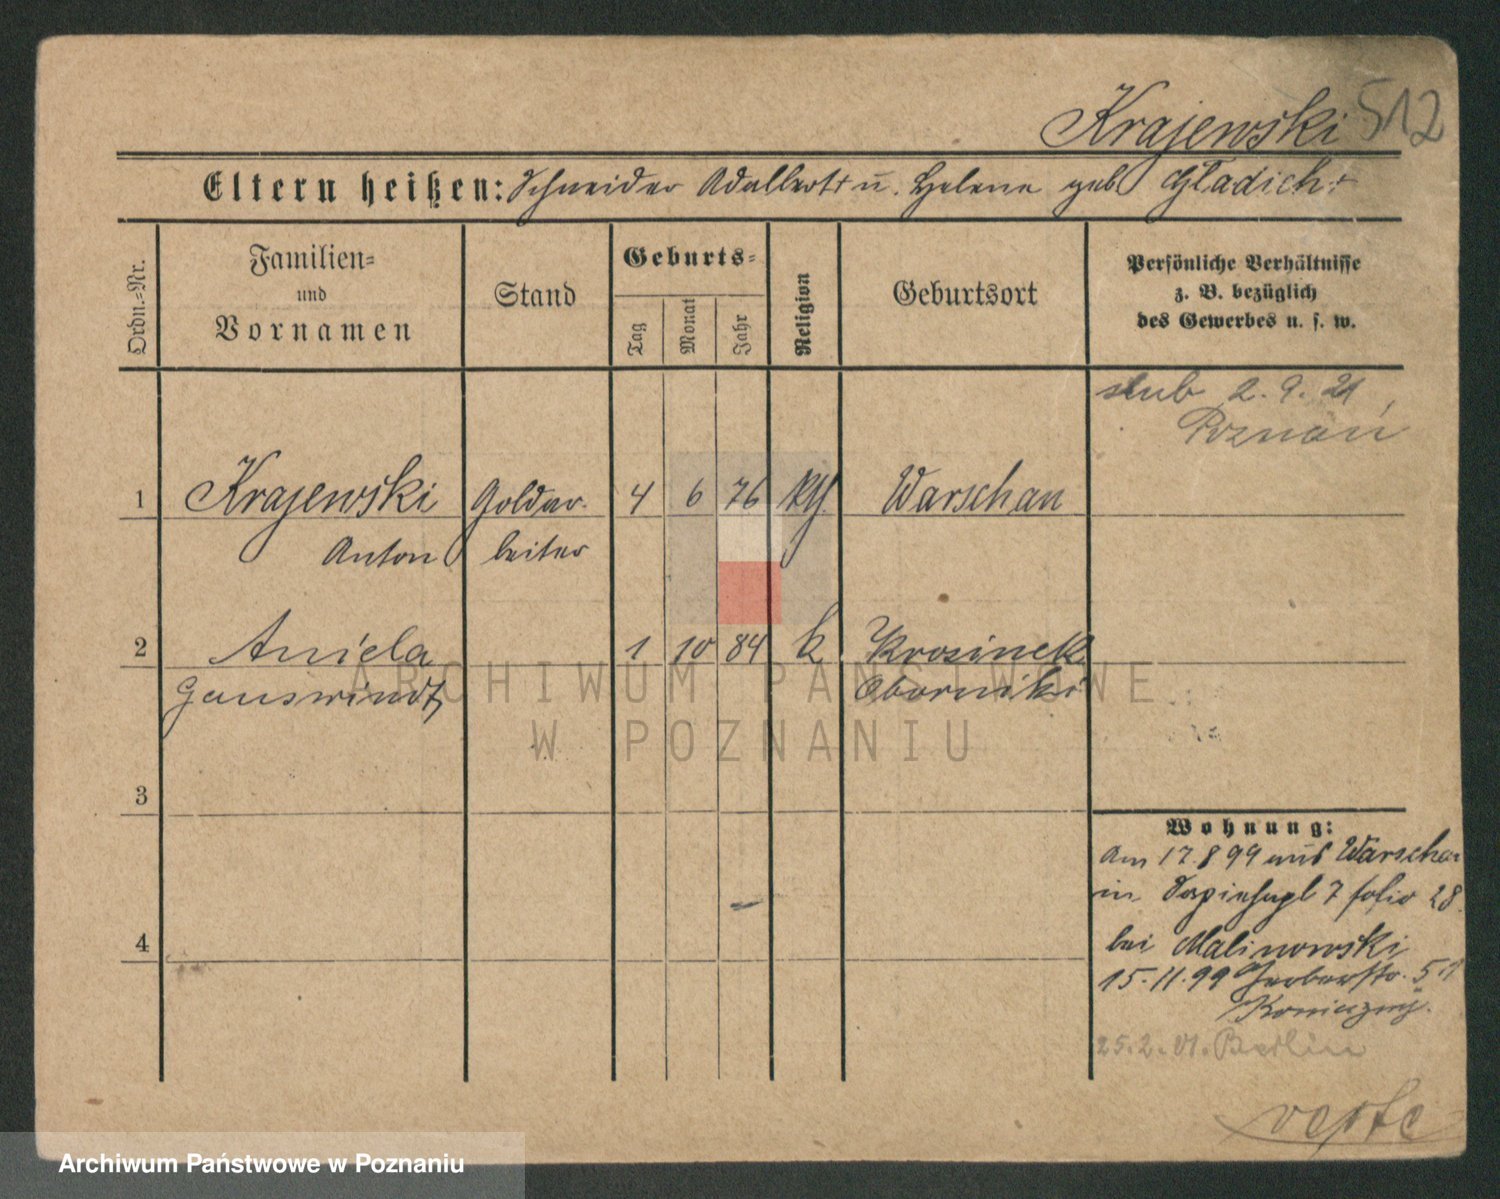 Krajewski 512
Eltern heißen: Schneider Adalbert + u. Helene geb Gładich +
Ordn.-Nr.
Familien-
und
Vornamen
Stand
Geburts-
Tag
Monat
Jahr
Religion
Geburtsort
Persönliche Verhältnisse
z. B. bezüglich
des Gewerbes u. s. w.
ślub 2. 9. 21
Poznań
1 Krajewski Goldar- 4 6 76 kth. Warschau
Anton beiter
2 Aniela 1 10 84 k Krosinek
Ganswindt Oborniki
3
4
Wohnung:
Am 17 8 99 aus Warschau
in 7 folio 28.
bei Malinowski
15. 11. 99 Gerberstr. 51
25. 2. 01. Berlin
verte
ARCHIWUM PAŃSTWOWE
W POZNANIU
Archiwum Państwowe w Poznaniu